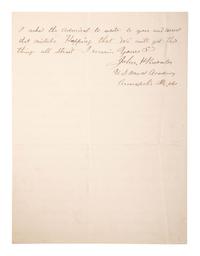 I asked the Admiral to write to you and correct
that mistake Hopping that we will get this
thing all straight I remain Yours &
John H
U.S. Naval Academy
Annapolis Md